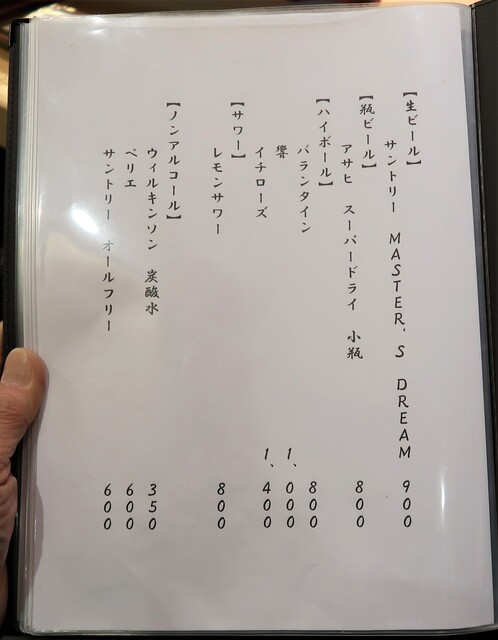 【生ビール】
サントリー MASTER'S DREAM 900
【瓶ビール】
アサヒ スーパードライ 小瓶 800
【ハイボール】
バランタイン 800
響 1、000
イチローズ 1、400
【サワー】
レモンサワー 800
【ノンアルコール】
ウィルキンソン 炭酸水 350
ペリエ 600
サントリー オールフリー 600